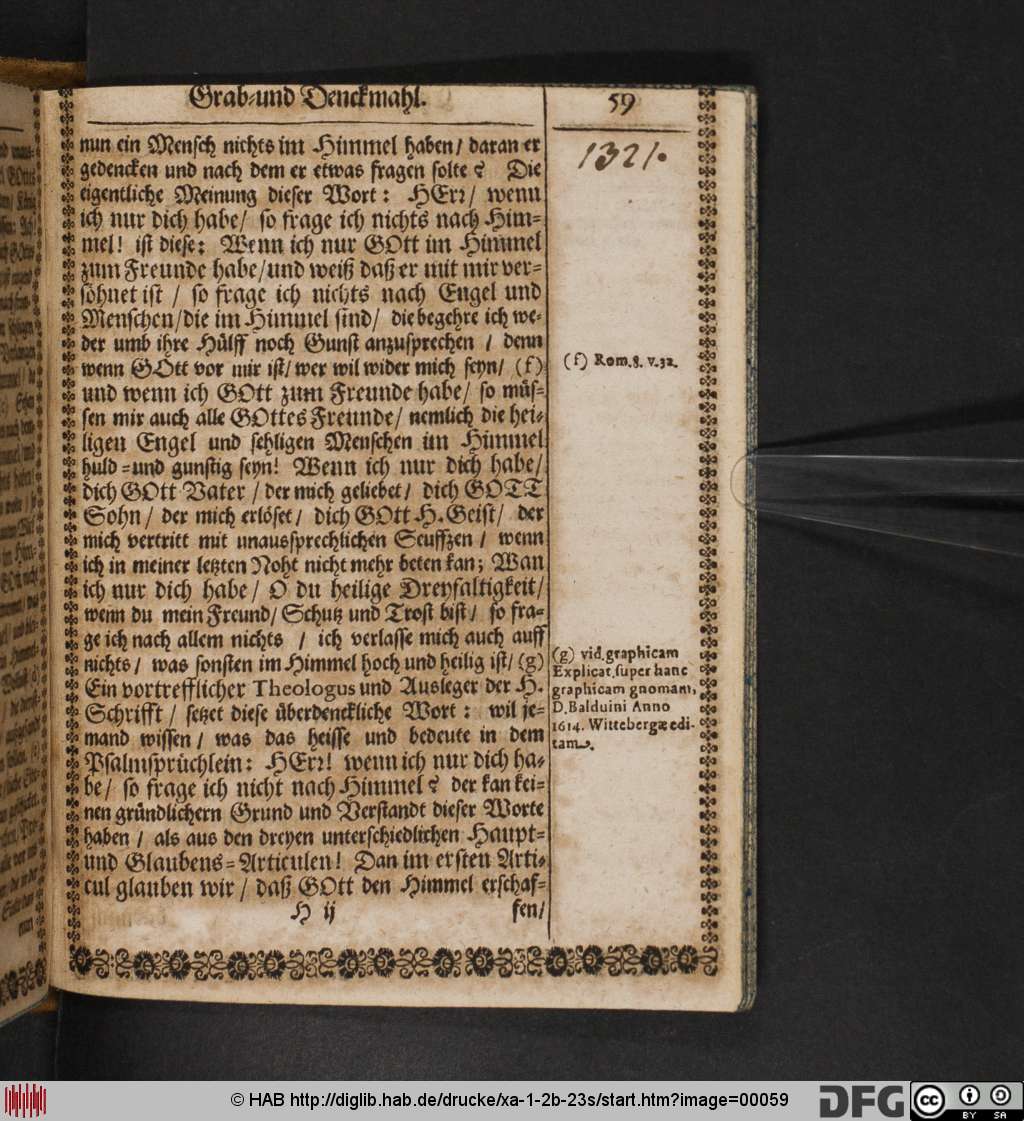 Grab- und Denckmahl.
59
1321.
nun ein Mensch nichts im Himmel haben / daran er
gedencken und nach dem er etwas fragen solte? Die
eigentliche Meinung dieser Wort: HErr / wenn
ich nur dich habe / so frage ich nichts nach Him-
mel! ist diese: Wenn ich nur GOtt im Himmel
zum Freunde habe / und weiß daß er mit mir ver-
söhnet ist / so frage ich nichts nach Engel und
Menschen / die im Himmel sind / die begehre ich we-
der umb ihre Hülff noch Gunst anzusprechen / denn
wenn GOtt vor mir ist / wer wil wider mich seyn / (f)
und wenn ich GOtt zum Freunde habe / so müs-
sen mir auch alle GOttes Freunde / nemlich die hei-
ligen Engel und sehligen Menschen im Himmel
huld- und gunstig seyn! Wenn ich nur dich habe /
dich GOtt Vater / der mich geliebet / dich GOTT
Sohn / der mich erlöset / dich GOtt H. Geist / der
mich vertritt mit unaussprechlichen Seuffzen / wenn
ich in meiner letzten Noht nicht mehr beten kan; Wan
ich nur dich habe / O du heilige Dreyfaltigkeit /
wenn du mein Freund / Schutz und Trost bist / so fra-
ge ich nach allem nichts / ich verlasse mich auch auff
nichts / was sonsten im Himmel hoch und heilig ist / (g)
Ein vortrefflicher Theologus und Ausleger der H.
Schrifft / setzet diese überdenckliche Wort: wil je-
mand wissen / was das heisse und bedeute in dem
Psalmsprüchlein: HErr! wenn ich nur dich ha-
be / so frage ich nicht nach Himmel? der kan kei-
nen gründlichern Grund und Verstandt dieser Worte
haben / als aus den dreyen unterschiedlichen Haupt-
und Glaubens-Articulen! Dan im ersten Arti-
cul glauben wir / daß GOtt den Himmel erschaf-
H ij
fen /
(f) Rom. 8. v. 32.
(g) vid. graphicam
Explicat. super hanc
graphicam gnomam,
D. Balduini Anno
1614. Wittebergæ edi-
tam.
© HAB http://diglib.hab.de/drucke/xa-1-2b-23s/start.htm?image=00059
DFG
cc
BY
SA